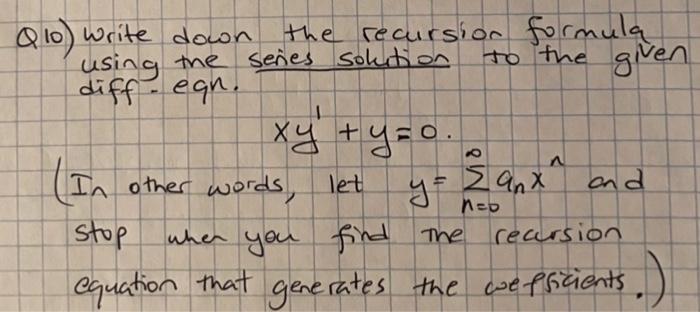 Q10) Write down the recursion formula
using the series solution to the given
diff-eqn.
xy' + y = 0.
(In other words, let y = ∑_{n=0}^{∞} a_n x^n and
stop when you find the recursion
equation that generates the coefficients.)